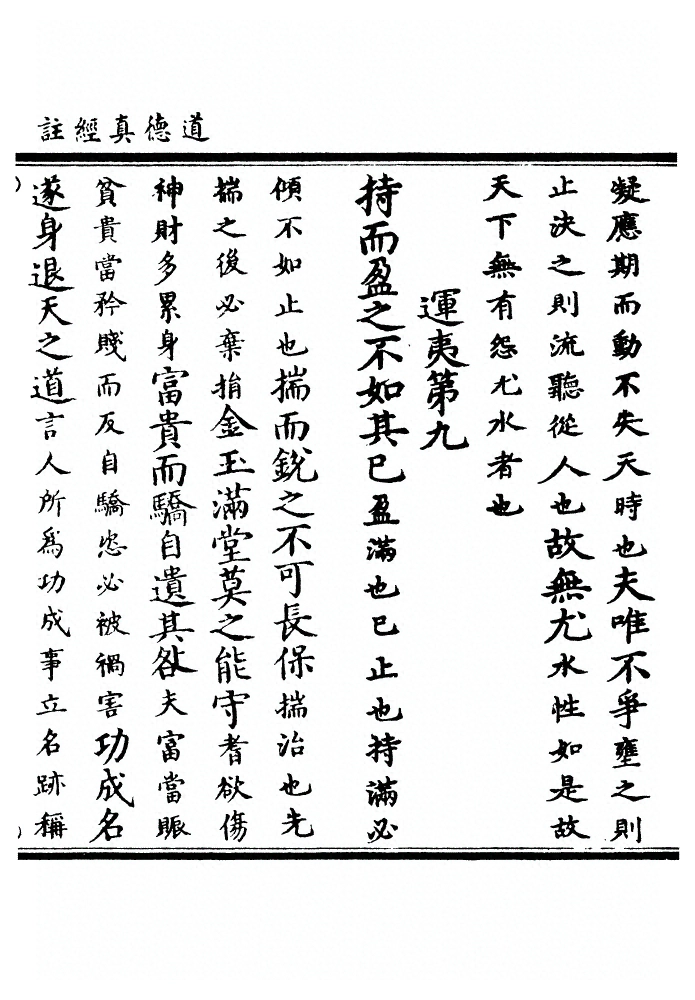 道德真經註
凝應期而動不失天時也夫唯不爭壅之則
止決之則流聽從人也故無尤水性如是故
天下無有怨尤水者也
運夷第九
持而盈之不如其已盈滿也已止也持滿必
傾不如止也揣而銳之不可長保揣治也先
揣之後必棄捐金玉滿堂莫之能守耆欲傷
神財多累身富貴而驕自遺其咎夫富當賑
貧貴當矜賤而反自驕恣必被禍害功成名
遂身退天之道言人所為功成事立名跡稱